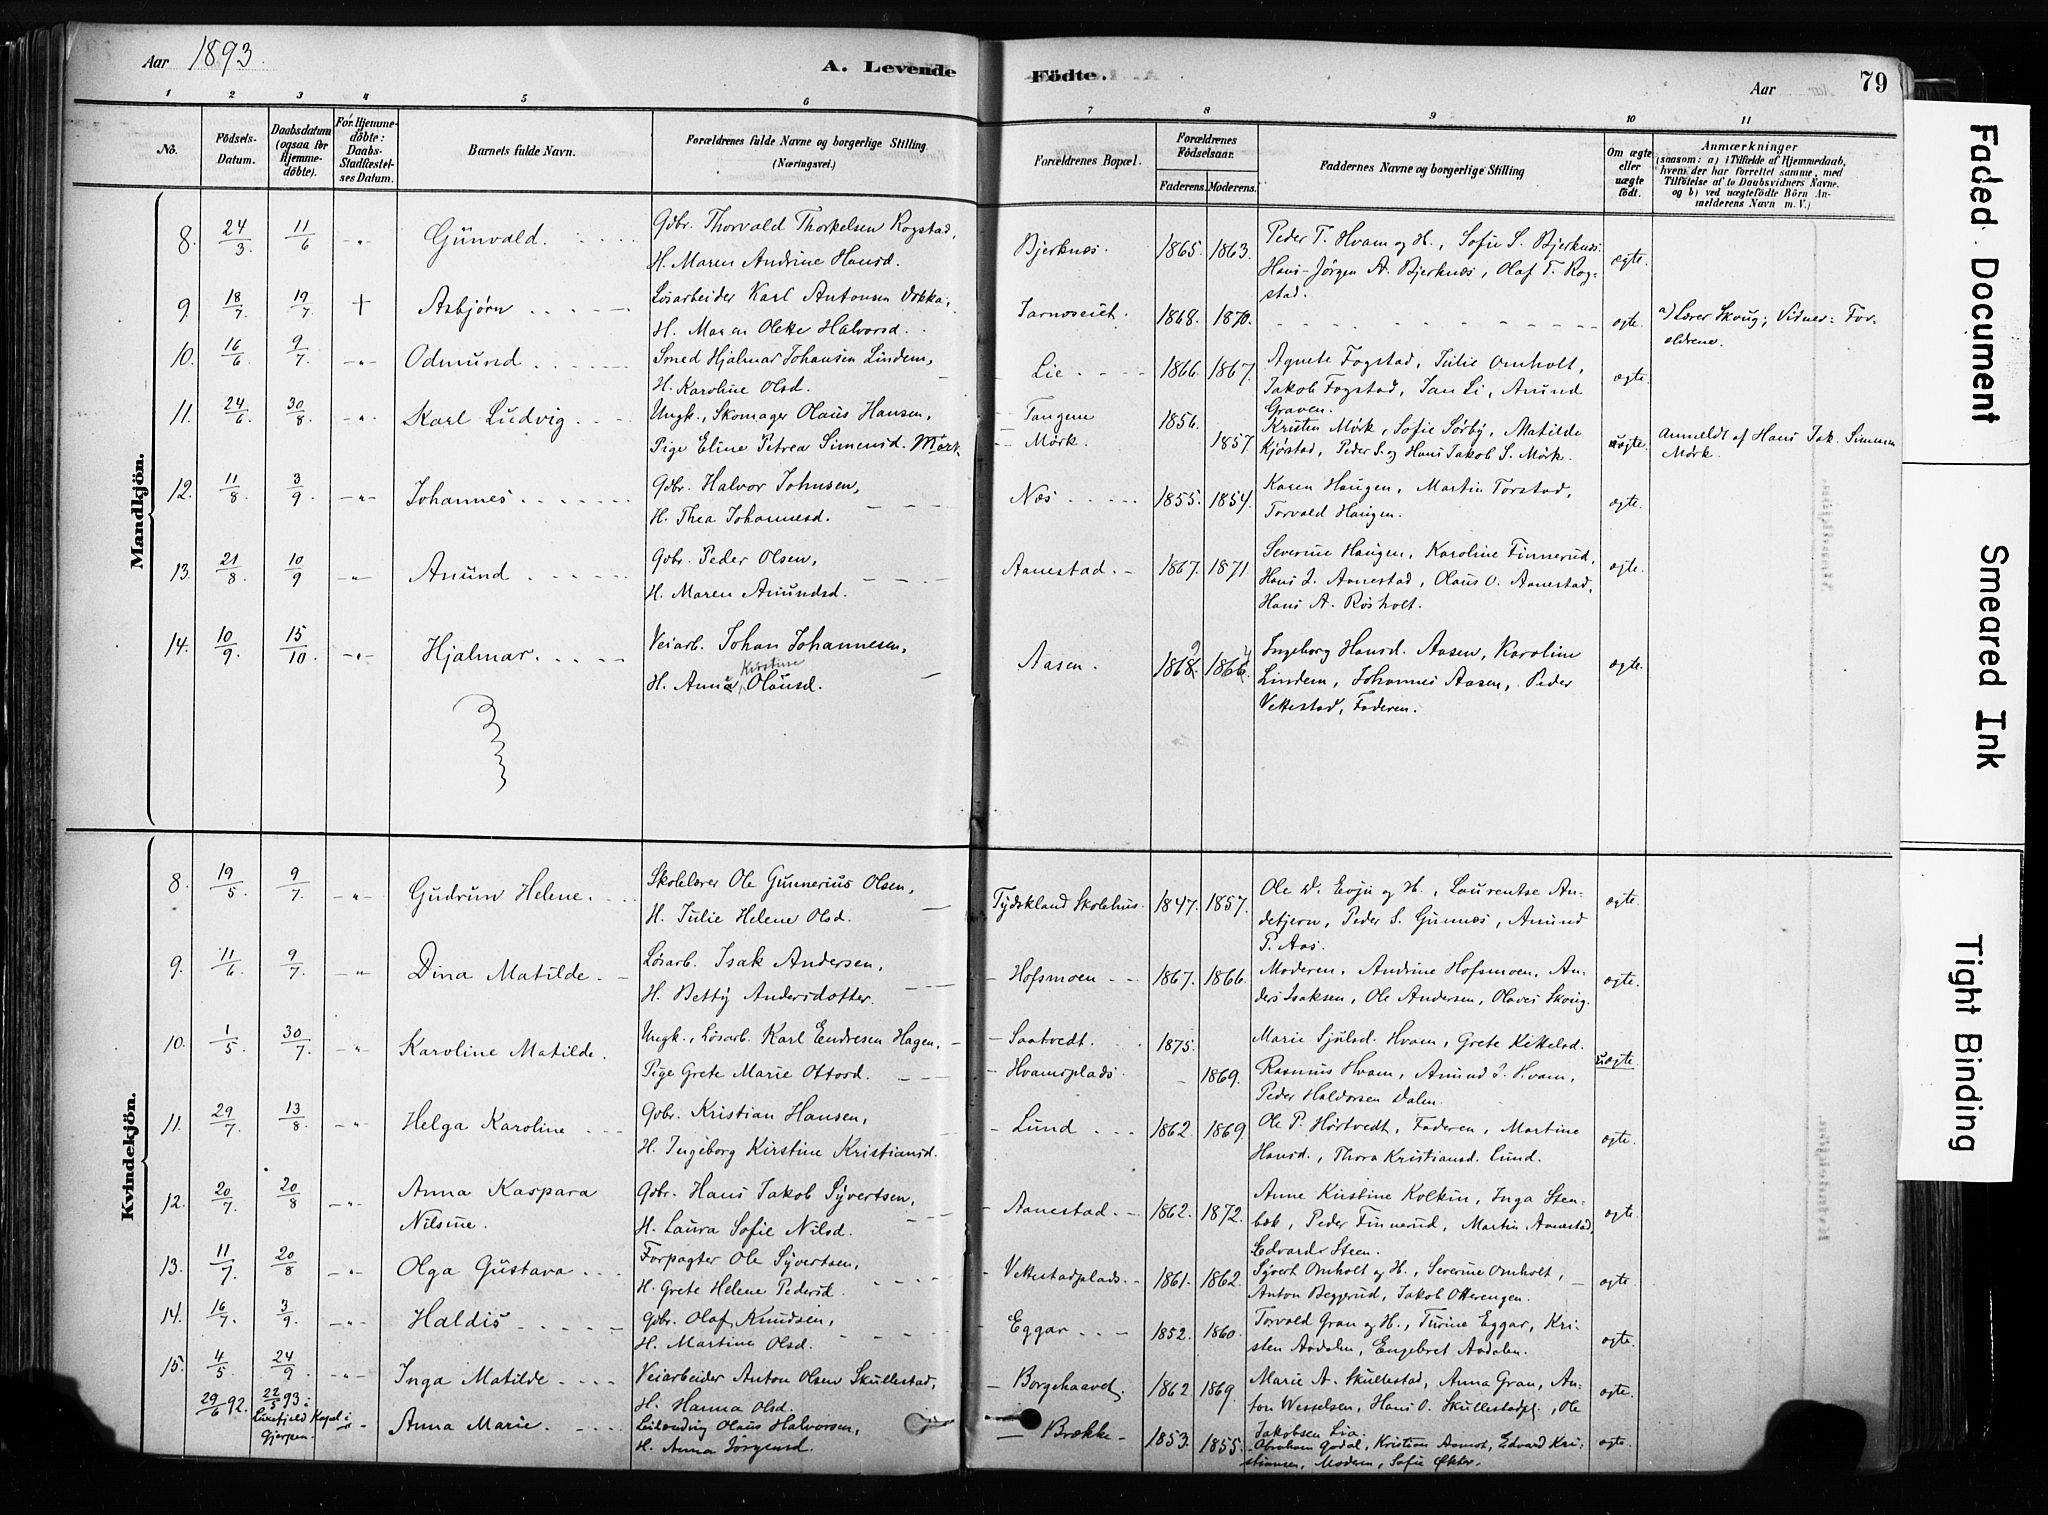 Aar 1893.
A. Levende Födte.
Aar 79
1 2 3 4 5 6 7 8 9 10 11
No.
Födsels-Datum.
Daabsdatum (ogsaa for Hjemmedöbte).
For Hjemmedöbte: Daabs-Stadfæstelses Datum.
Barnets fulde Navn.
Forældrenes fulde Navne og borgerlige Stilling (Næringsvei.)
Forældrenes Bopæl.
Forældrenes Födselsaar.
Faderens. Moderens.
Faddernes Navne og borgerlige Stilling
Om ægte eller uægte födt.
Anmærkninger (saasom: a) i Tilfælde af Hjemmedaab, hvem der har forrettet samme, med Tilföielse af to Daabsvidners Navne. og b) ved uægtefödte Börn Anmelderens Navn m. V.)
Mandkjön.
8. 24/3 11/6 -"- Gunvald. Gbr. Thorvald Thorkelsen Rogstad, Bjerknes. 1865. 1863. Peder T. Hvam og H., Sofie S. Bjerknes. ægte.
H. Maren Andrine Hansd. Hans-Jørgen A. Bjerknes, Olaf T. Rogstad.
9. 18/7 19/7 + Asbjørn Løsarbeider Karl Antonsen Dokka, Tarnoseiet. 1868. 1870. ægte. a) Lærer Skoug; Vidner: Forældrene.
H. Maren Olette Halvorsd.
10. 16/6 9/7 -"- Odmund Smed Hjalmar Johansen Lindem, Lie 1866. 1867. Agnete Fogstad, Julie Omholt, ægte.
H. Karoline Olsd. Jakob Fogstad, Jan Li, Amund Graven.
11. 24/6 30/8 -"- Karl Ludvig Ungk., Skomager Olaus Hansen, Tangem 1856. Kristin Mørk, Sofie Sørby, Matilde uægte. Anmeldt af Hans Jak. Simensen Mørk.
Pige Eline Petrea Simensd. Mørk. Mørk. 1857. Kjørstad, Peder S. og Hans Jakob S. Mørk.
12. 11/8 3/9 -"- Johannes Gbr. Halvor Johnsen, Næs 1855. 1854. Karen Haugen, Martin Torstad, ægte.
H. Thea Johannesd. Torvald Haugen.
13. 21/8 10/9 -"- Amund Gbr. Peder Olsen, Aanestad. 1867. 1871. Severine Haugen, Karoline Finnerud, ægte.
H. Maren Amundsd. Hans J. Aanestad, Olaus O. Aanestad, Hans A. Røsholt.
14. 10/9 15/10 -"- Hjalmar. Veiarb. Johan Johannesen, Aasen. 1868. 9 1866. 4 Ingeborg Hansd. Aasen, Karoline ægte.
H. Anna Kirstine Olausd. Lindem, Johannes Aasen, Peder Vettestad, Faderen.
Kvindekjön.
8. 19/5 9/7 -"- Gudrun Helene. Skolelærer Ole Gunnerius Olsen, Tydskland Skolehus. 1847. 1857. Ole D. Evju og H., Laurentse An- ægte.
H. Julie Helene Olsd. detjern, Peder S. Gunnes, Amund P. Aas.
9. 11/6 9/7 -"- Dina Matilde. Løsarb. Isak Andersen, Hofsmoen 1867. 1866. Moderen, Andrine Hofsmoen, An- ægte.
H. Betty Andersdotter. ders Isaksen, Ole Andersen, Olaves Skoug.
10. 1/5 30/7 -"- Karoline Matilde. Ungk., Løsarb. Karl Endresen Hagen, Saatvedt. 1875. Marie Sjulsd. Hvam, Grete Kittelsd. uægte.
Pige Grete Marie Ottosd. Hvamsplads. 1869. Rasmus Hvam, Amund J. Hvam, Peder Haldorsen Dalen.
11. 29/7 13/8 -"- Helga Karoline Gbr. Kristian Hansen, Lund 1862. 1869. Ole P. Hørtvedt, Faderen, Martine ægte.
H. Ingeborg Kirstine Kristiansd. Hansd., Thora Kristiansd. Lund.
12. 20/7 20/8 -"- Anna Kaspara Nilsine. Gbr. Hans Jakob Syvertsen, Aanestad. 1862. 1872. Anne Kirstine Kolkin, Inga Sten- ægte.
H. Laura Sofie Nilsd. bæk, Peder Finnerud, Martin Aanestad, Edvard Steen.
13. 11/7 20/8 -"- Olga Gustava Forpagter Ole Syvertsen, Vettestadplads. 1861. 1862. Syvert Omholt og H., Severine Omholt, ægte.
H. Grete Helene Pedersd. Anton Beggerud, Jakob Otterengen.
14. 16/7 3/9 -"- Haldis Gbr. Olaf Knudsen, Eggar 1852. 1860. Torvald Gran og H., Turine Eggar, Kri- ægte.
H. Martine Olsd. sten Aadalen, Engebret Aadalen.
15. 4/5 24/9 -"- Inga Matilde Veiarbeider Anton Olsen Skullestad, Borgehaavet. 1862 1869. Marie A. Skullestad, Anna Gran, An- ægte.
H. Hanna Olsd. ton Wesselsen, Hans O. Skullestadpl., Ole Jakobsen Lia.
29/6 92. 22/5 93 i Luxefjeld Kapel i Gjerpen. -"- Anna Marie Leilænding Olaus Halvorsen, Brække 1853. 1855. Abraham Godal, Kristian Aamot, Edvard Kri- ægte.
H. Anna Jørgensd. stiansen, Moderen, Sofie Økter.
Faded Document
Smeared Ink
Tight Binding